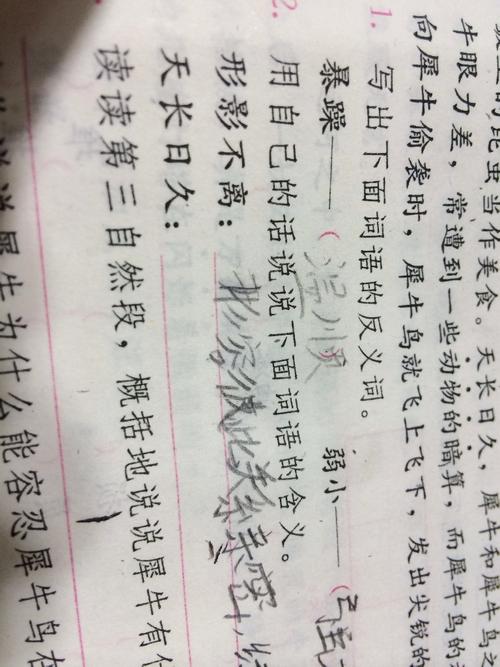 的昆虫当作美食。天长日久，犀牛和犀牛鸟之
牛眼力差，常遭到一些动物的暗算，而犀牛鸟的
向犀牛偷袭时，犀牛鸟就飞上飞下，发出尖锐的
1. 写出下面词语的反义词。
暴躁——（温顺 弱小——（强
2. 用自己的话说说下面词语的含义。
形影不离：形容彼此关系亲密，
天长日久：
读读第三自然段，概括地说说犀牛有什
说犀牛为什么能容忍犀牛鸟在